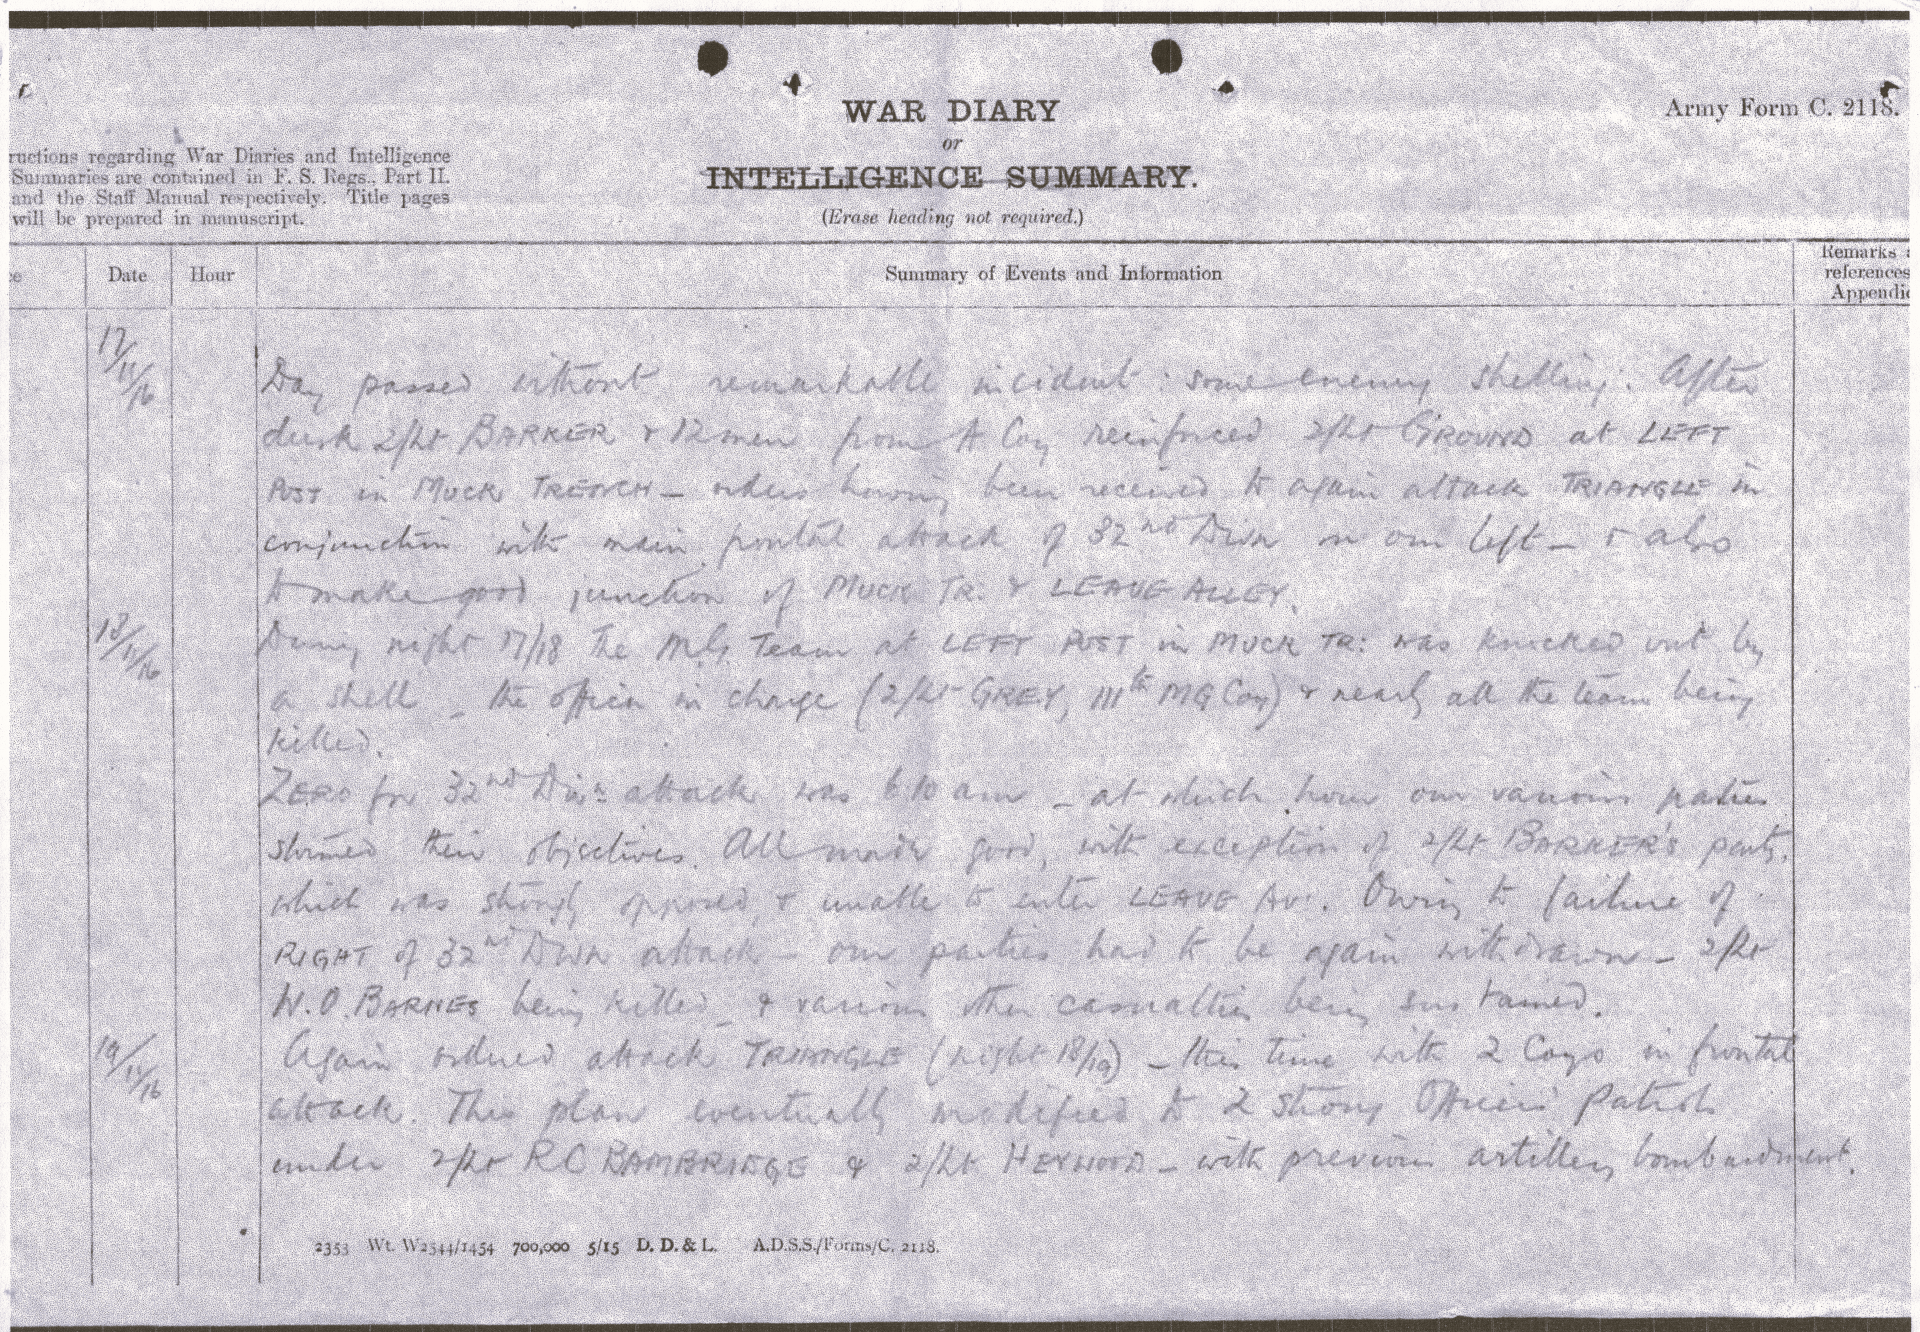 WAR DIARY
or
INTELLIGENCE SUMMARY.
(Erase heading not required.)
Army Form C. 2118.
ructions regarding War Diaries and Intelligence
Summaries are contained in F. S. Regs., Part II.
and the Staff Manual respectively. Title pages
will be prepared in manuscript.
Date
Hour
Summary of Events and Information
Remarks
references
Appendic
17/11/16
Day passed without remarkable incident : some enemy shelling. After
dusk 2/Lt BARKER & 12 men from A Coy reinforced 2/Lt GROUND at LEFT
POST in MUCK TRENCH – orders having been received to again attack TRIANGLE in
conjunction with main frontal attack of 32nd Divn on our left – & also
to make good junction of MUCK TR. & LEAVE ALLEY.
18/11/16
During night 17/18 The M.G. Team at LEFT POST in MUCK TR: was knocked out by
a shell – the officer in charge (2/Lt GREY, 111th MG Coy) & nearly all the team being
killed.
ZERO for 32nd Divn attack was 6 10 am – at which hour our various parties
stormed their objectives. All made good, with exception of 2/Lt BARKER'S party,
which was strongly opposed, & unable to enter LEAVE AV:. Owing to failure of
RIGHT of 32nd Divn attack – our parties had to be again withdrawn – 2/Lt
W.O. BARNES being killed – & various other casualties being sustained.
19/11/16
Again ordered attack TRIANGLE (night 18/19) – this time with 2 Coys in frontal
attack. This plan eventually modified to 2 strong Officers' Patrols
under 2/Lt R C BAMBRIDGE & 2/Lt HEYWOOD – with previous artillery bombardment.
2353 Wt. W2544/1454 700,000 5/15 D. D. & L. A.D.S.S./Forms/C. 2118.